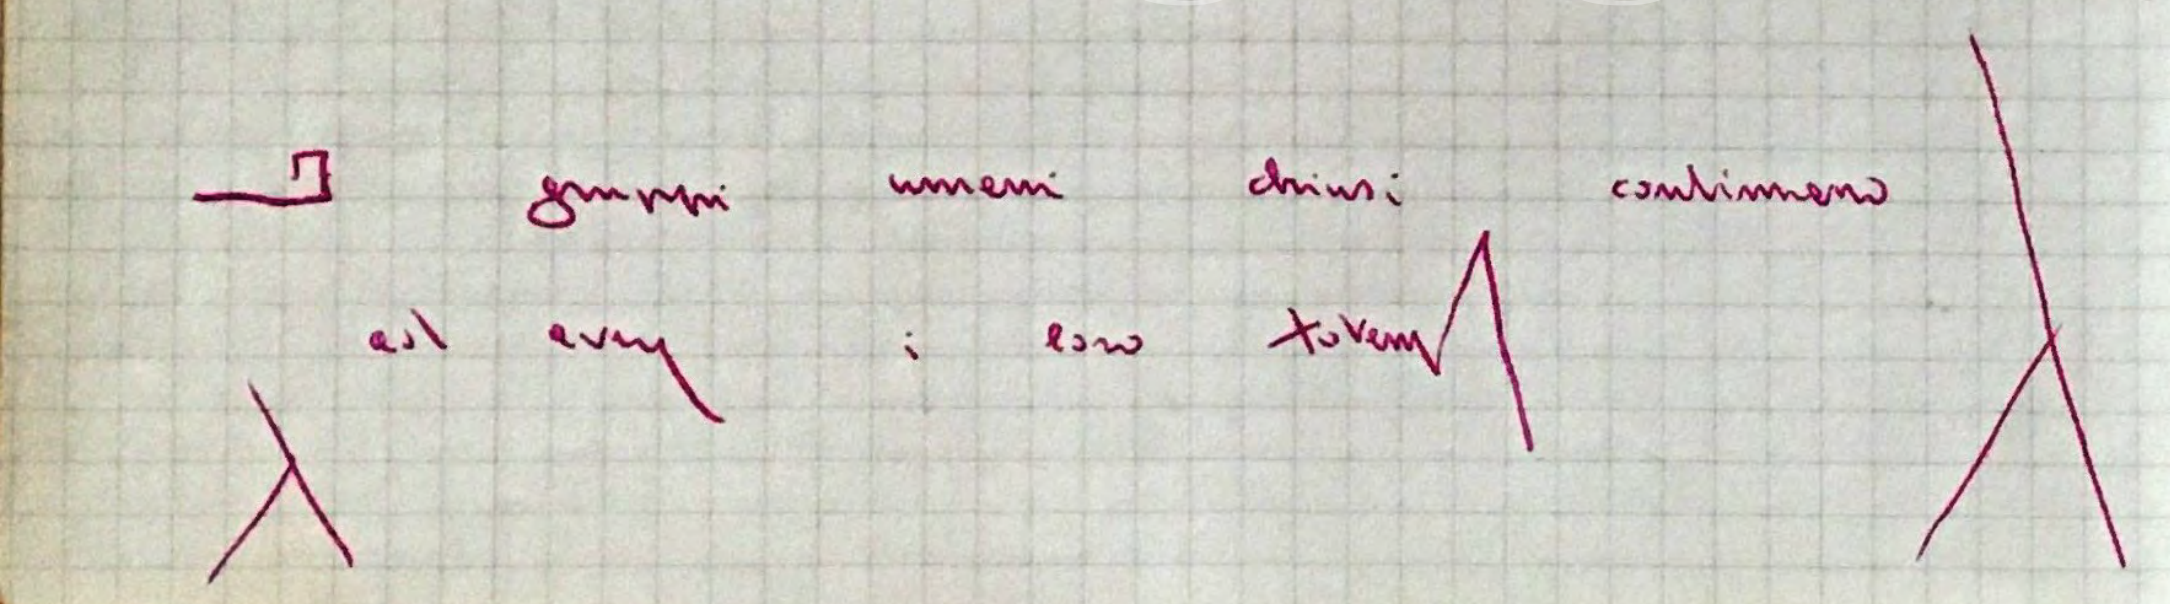 gruppi umani chiusi continuano
ad avere i loro totem